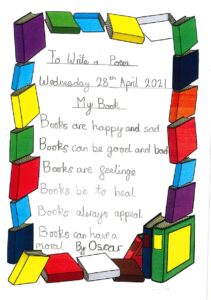 To Write a Poem
Wednesday 28th April 2021
My Book
Books are happy and sad
Books can be good and bad
Books are feelings
Books be to heal
Books always appeal
Books can have a
moral By Oscar